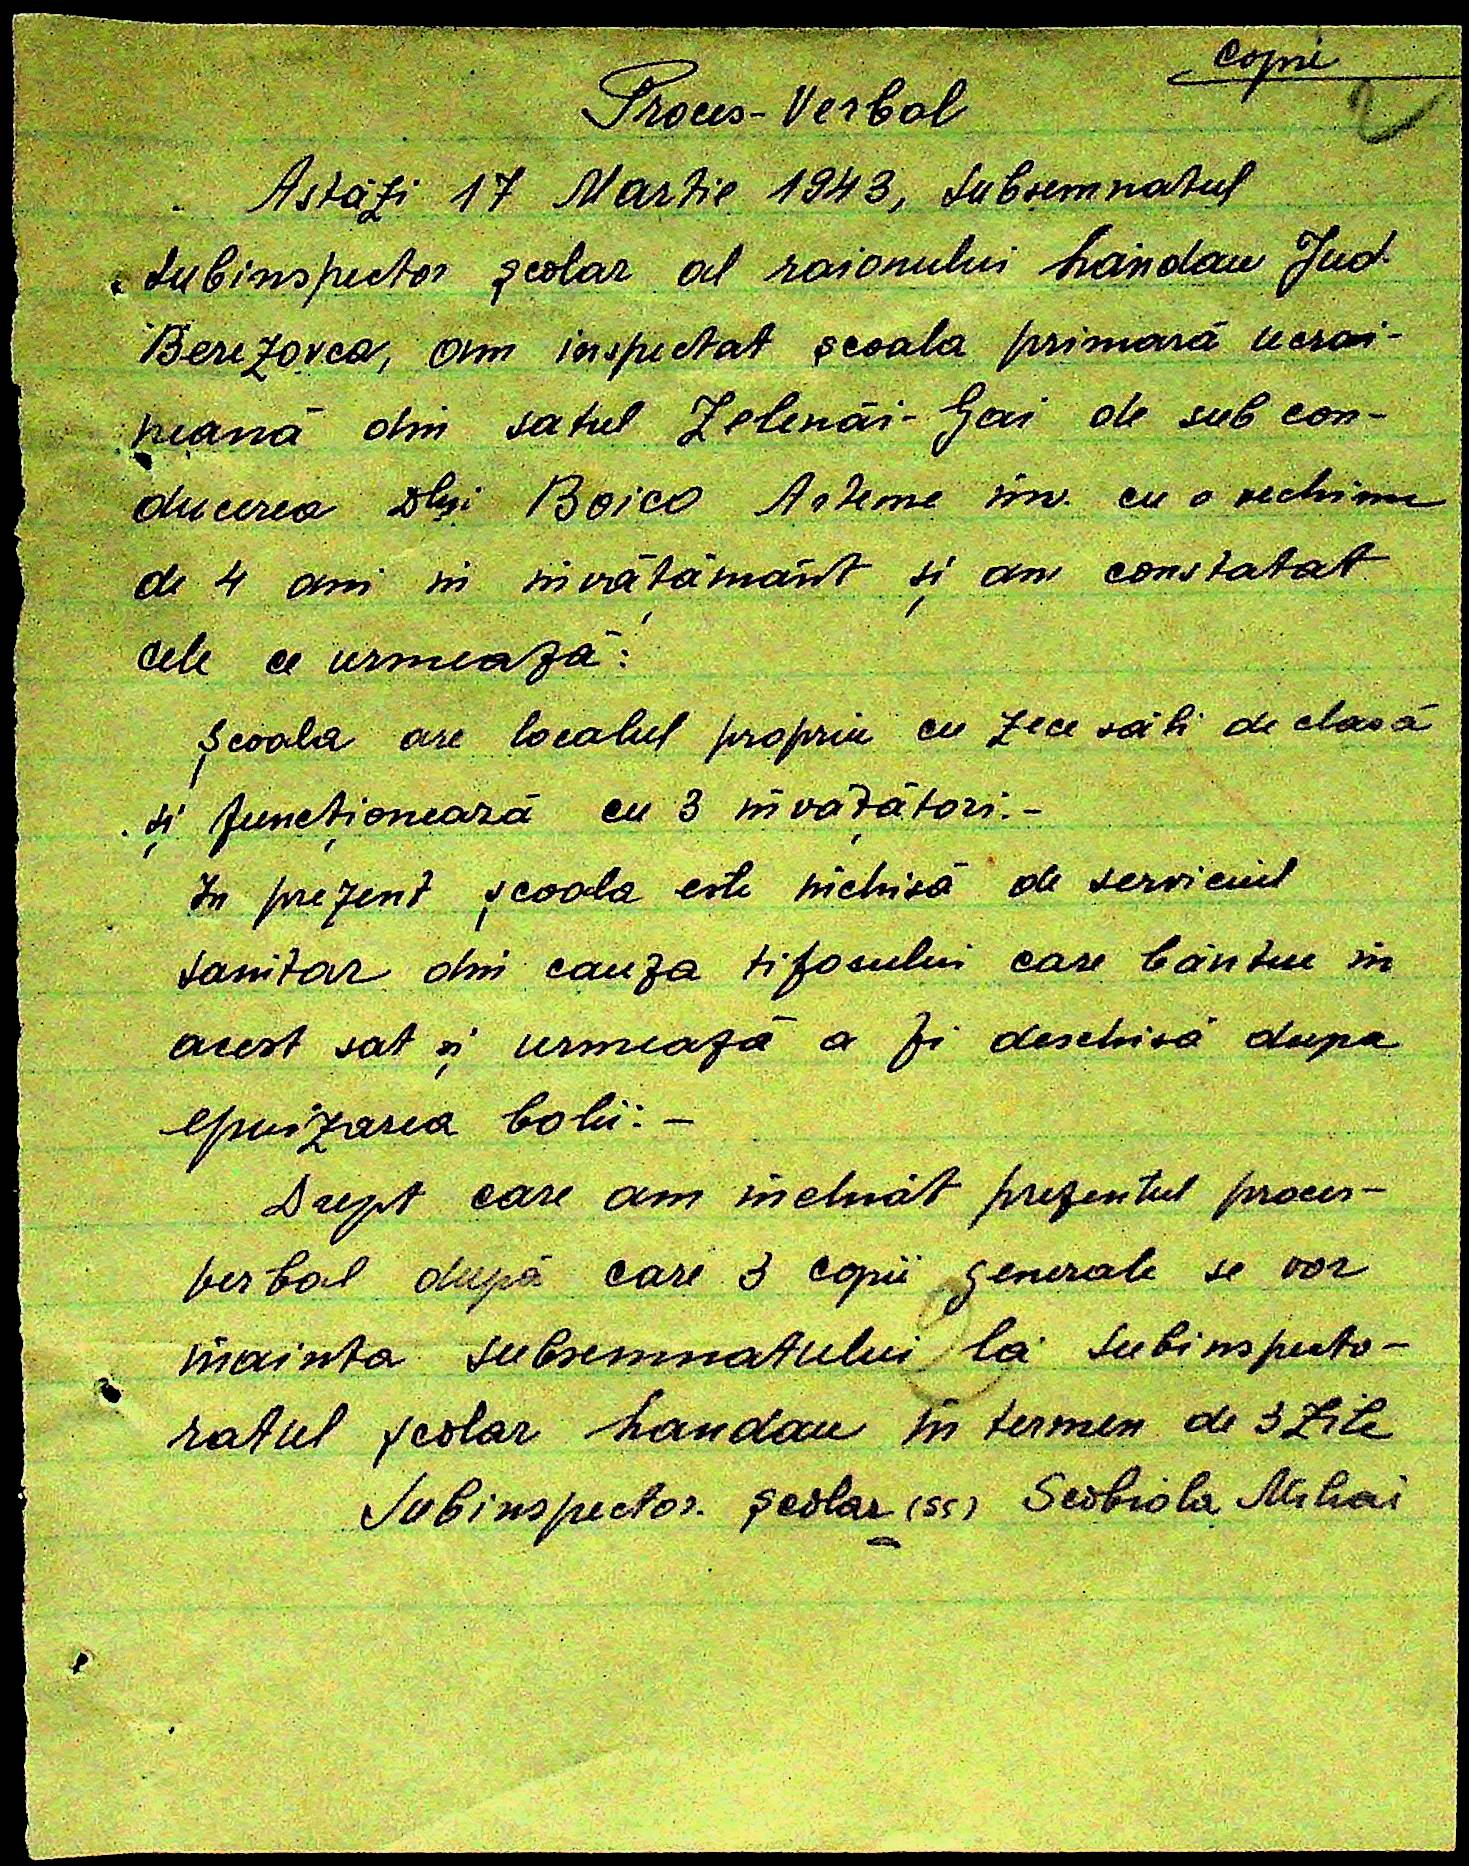 Copie
2
Proces-Verbal
Astăzi 17 Martie 1943, subsemnatul
subinspector școlar al raionului Landau Jud.
Berezovca, am inspectat școala primară ucrai-
neană din satul Zelenăi-Gai de sub con-
ducerea Dlui Boico Arteme înv. cu o vechime
de 4 ani în învățământ și am constatat
cele ce urmează:
Școala are localul propriu cu zece săli de clasă
și funcționează cu 3 învățători.-
In prezent școala este închisă de serviciul
sanitar din cauza tifosului care bântue în
acest sat și urmează a fi deschisă dupa
epuizarea bolii.-
Drept care am încheiat prezentul proces-
verbal după care 3 copii generale se vor
înainta subsemnatului la subinspecto-
ratul școlar Landau în termen de 3 zile
Subinspector școlar (ss) Scobiola Mihai